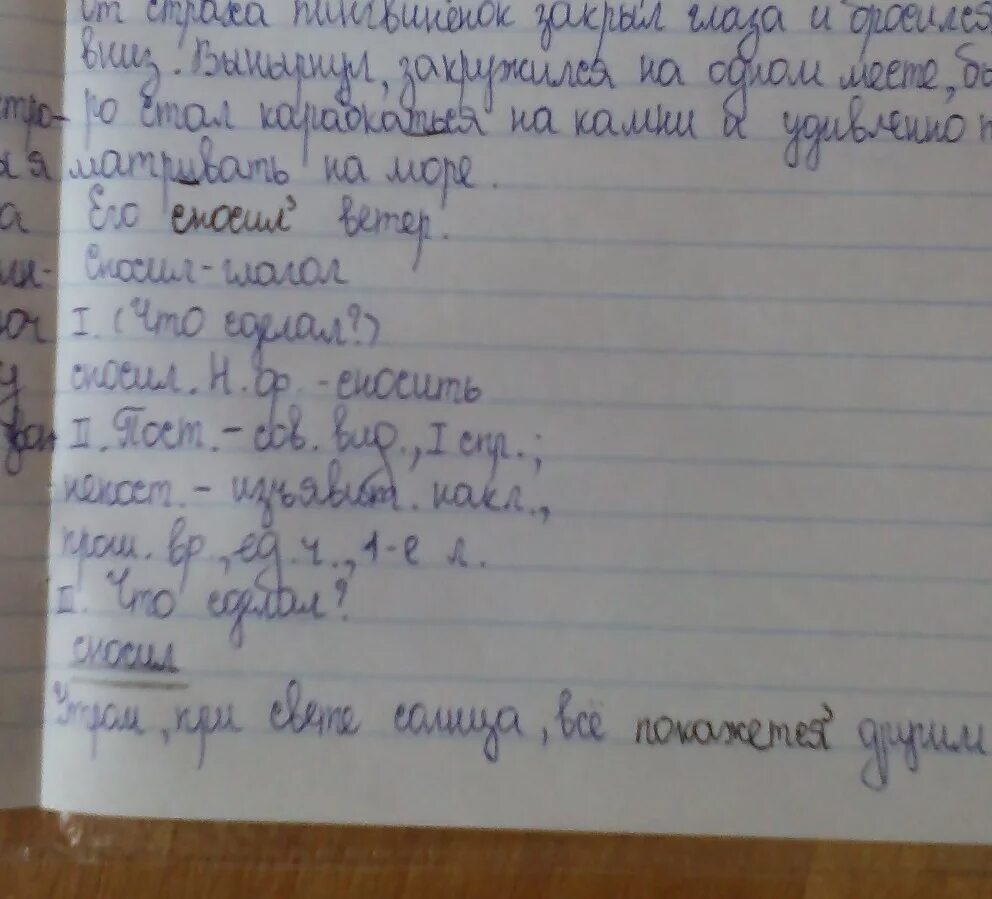 от страха пингвинёнок закрыл глаза и бросился
вниз. Вынырнул, закружился на одном месте, бы
стро- ро стал карабкаться на камни и удивленно п
ья матривать на море.
а Его сносил³ ветер.
ли- Сносил - глагол
оч I. (Что сделал?)
у сносил. Н. ф. - сносить
II. Пост. - сов. вид., I спр.;
непост. - изъявит. накл.,
прош. вр., ед. ч., 1-е л.
II. Что сделал?
сносил
Утром, при свете солнца, всё покажется³ другим